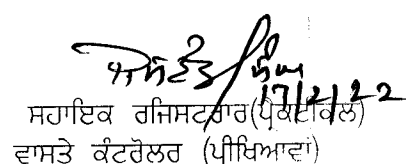 17/2/22
ਸਹਾਇਕ ਰਜਿਸਟਰਾਰ(ਪ੍ਰੈਕਟੀਕਲ)
ਵਾਸਤੇ ਕੰਟਰੋਲਰ (ਪੀਖਿਆਵਾਂ)